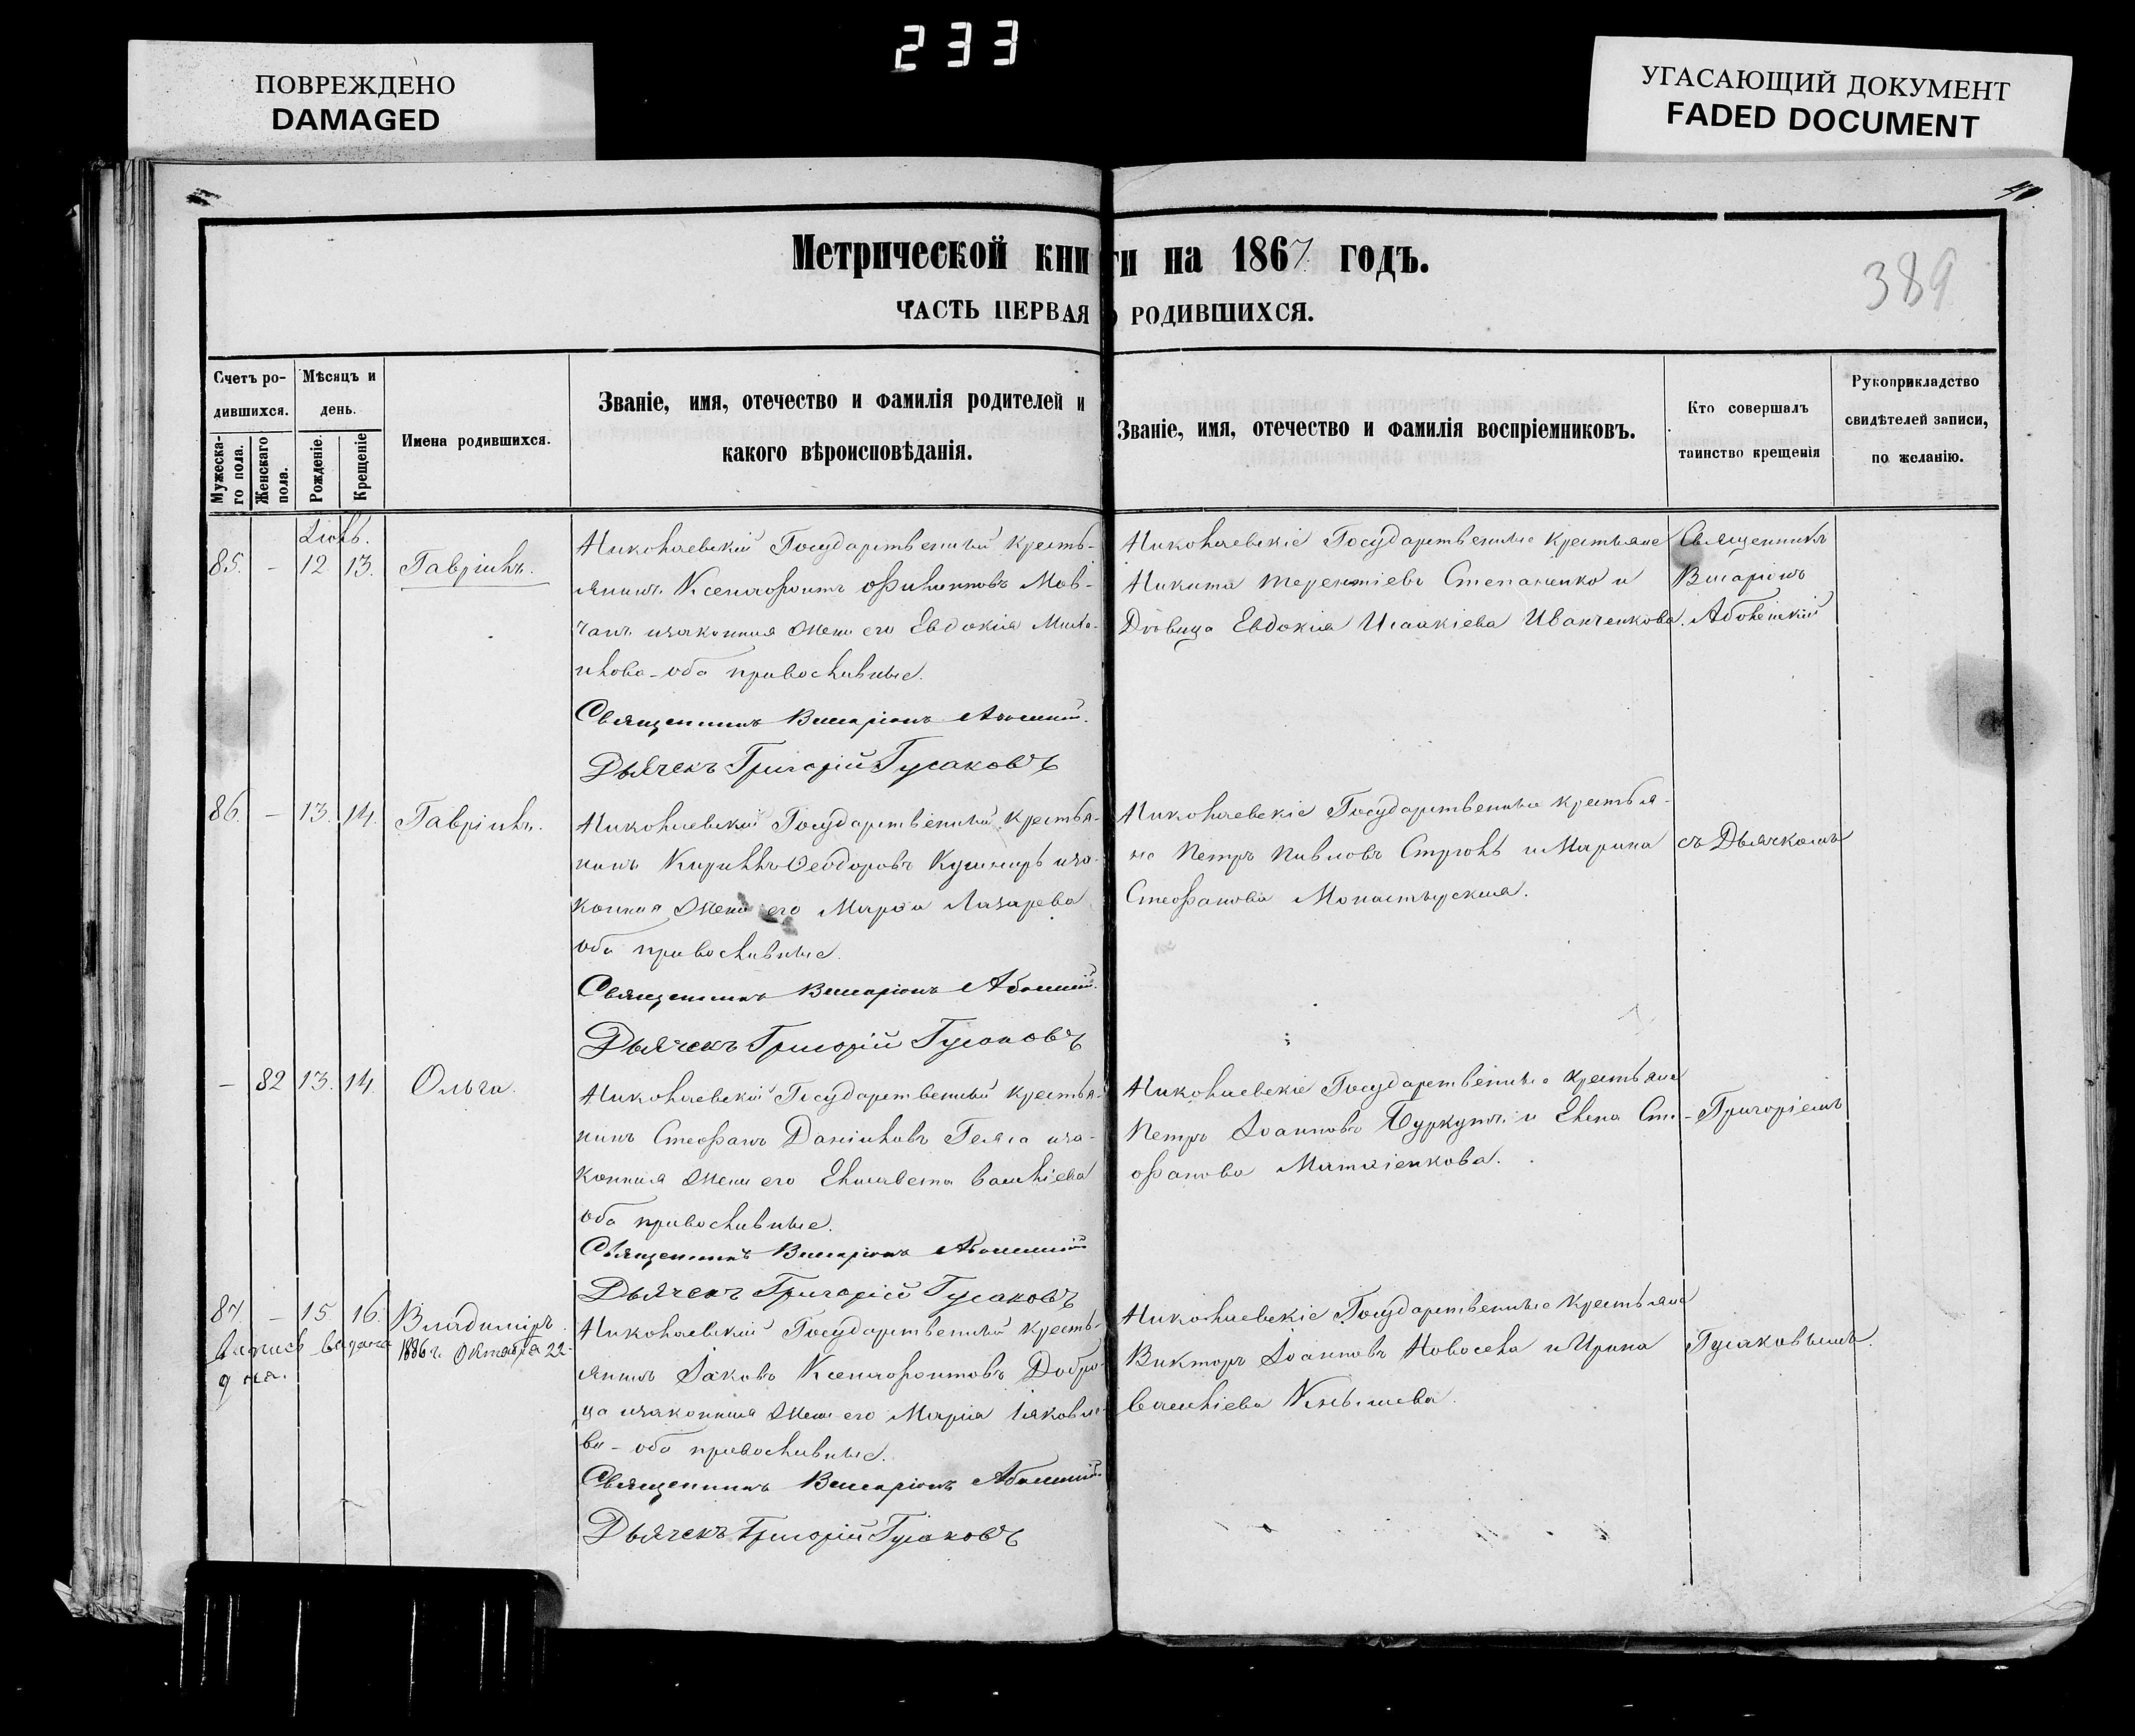 233
ПОВРЕЖДЕНО
DAMAGED
УГАСАЮЩИЙ ДОКУМЕНТ
FADED DOCUMENT
Метрической книги на 1867 годъ.
389
ЧАСТЬ ПЕРВАЯ О РОДИВШИХСЯ.
Счетъ ро-
дившихся.
Мужеска-
го пола.
Женскаго
пола.
Мѣсяцъ и
день.
Рожденіе.
Крещеніе
Имена родившихся.
Званіе, имя, отечество и фамилія родителей и
какого вѣроисповѣданія.
Званіе, имя, отечество и фамилія воспріемниковъ.
Кто совершалъ
таинство крещенія
Рукоприкладство
свидѣтелей записи,
по желанію.
Іюль.
85. - 12 13. Гавріилъ.
Николаевскій Государственный кресть-
янинъ Ксенофонтъ Филиповъ Мов-
чанъ и законная жена его Евдокія Миха-
илова - оба православные.
Священникъ Виссаріонъ
Дьячекъ Григорій Гусаковъ
Николаевскіе Государственные крестьяне
Никита Терентіевъ Степаненко и
Дѣвица Евдокія Исаакіева Иванченкова.
Священникъ
Висаріонъ
86. - 13. 14. Гавріилъ.
Николаевскій Государственный крестья-
нинъ Кириллъ Феодоровъ Кушниръ и за-
конная жена его Марфа Лазарева
оба православные.
Священникъ Виссаріонъ
Дьячекъ Григорій Гусаковъ
Николаевскіе Государственные крестья-
не Петръ Павловъ Стрюкъ и Марина
Стефанова Монастырская.
съ Дьячкомъ
- 82 13. 14. Ольга.
Николаевскій Государственный крестья-
нинъ Стефанъ Даніиловъ и за-
конная жена его Елисавета Васильева
оба православные.
Священникъ Виссаріонъ
Дьячекъ Григорій Гусаковъ
Николаевскіе Государственные крестьяне
Петръ Іоанновъ Буркутъ и Елена Сте-
фанова
Григоріемъ
87. - 15 16. Владимиръ.
выдана 1886 г. Октября 22
Николаевскій Государственный кресть-
янинъ Іаковъ Ксенофонтовъ Добро-
и законная жена его Марія Іаковле-
ва - оба православные.
Священникъ Виссаріонъ
Дьячекъ Григорій Гусаковъ
Николаевскіе Государственные крестьяне
Викторъ Іоанновъ Новосела и Ирина
Василіева
Гусаковымъ.